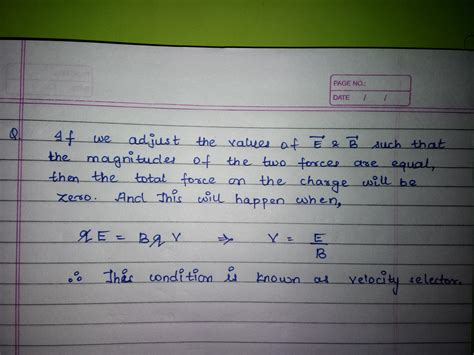 PAGE NO.:
DATE / /
Q. If we adjust the values of E⃗ & B⃗ such that
the magnitudes of the two forces are equal,
then the total force on the charge will be
zero. And This will happen when,
qE = BqV ⇒ V = E/B
∴ This condition is known as velocity selector.